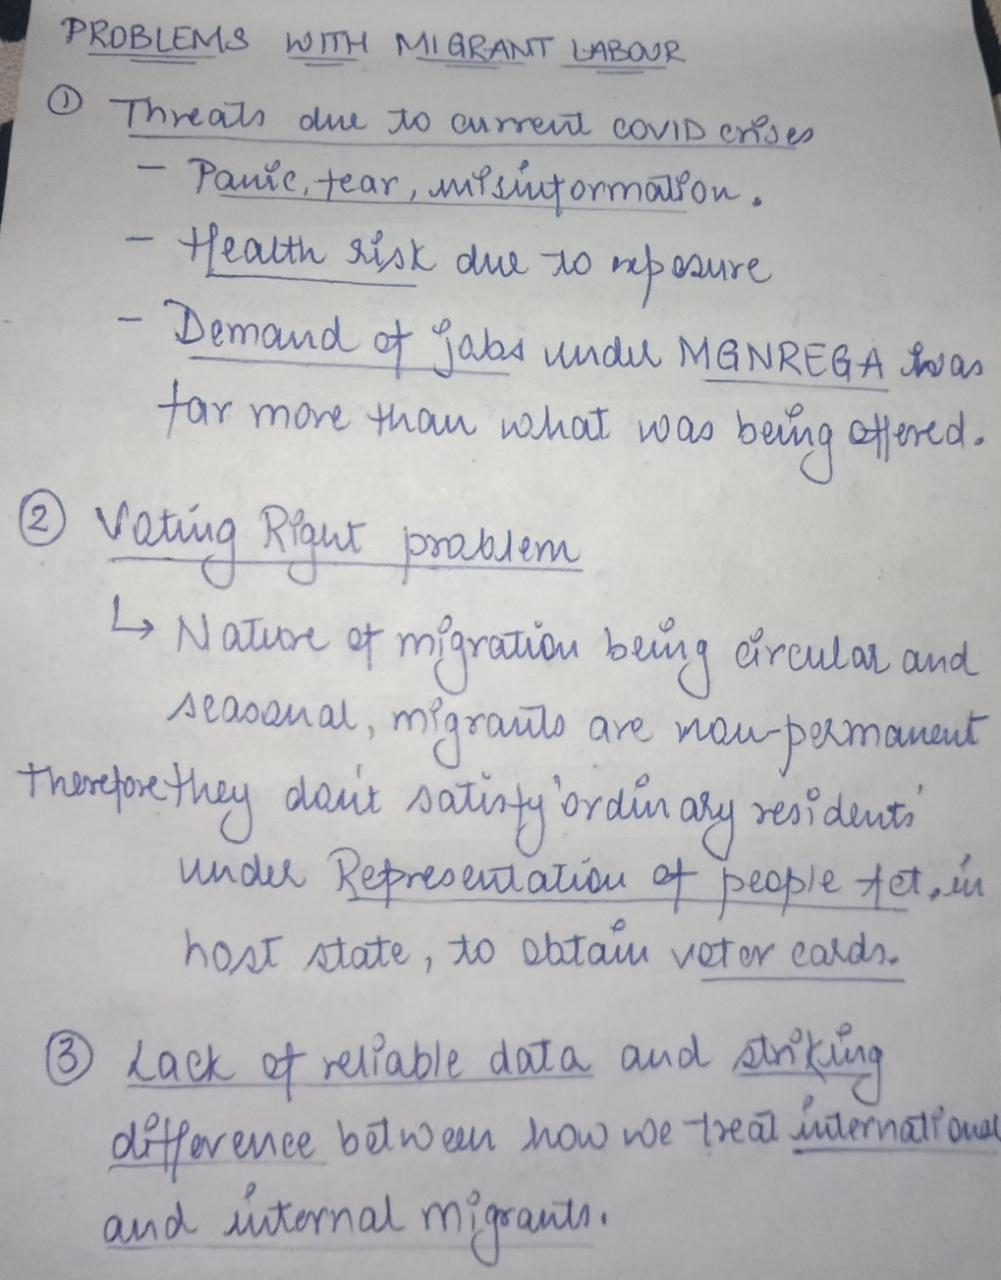 PROBLEMS WITH MIGRANT LABOUR
① Threats due to current COVID crises
- Panic, fear, misinformation.
- Health risk due to exposure
- Demand of jobs under MGNREGA was
far more than what was being offered.
② Voting Right problem
↳ Nature of migration being circular and
seasonal, migrants are non-permanent
therefore they don't satisfy 'ordinary residents'
under Representation of people Act, in
host state, to obtain voter cards.
③ Lack of reliable data and striking
difference between how we treat international
and internal migrants.